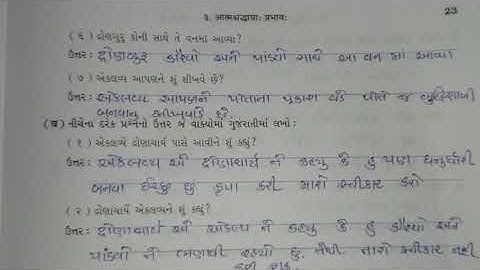 ૩. આત્મશ્રદ્ધાયાઃ પ્રભાવઃ 23
(૬) દ્રોણગુરુ કોની સાથે તે વનમાં આવ્યા?
ઉત્તરઃ દ્રોણગુરુ કૌરવો અને પાંડવો સાથે આ વન માં આવ્યા
(૭) એકલવ્ય આપણને શું શીખવે છે?
ઉત્તરઃ એકલવ્ય આપણને પોતાના પ્રકાશ વડે પોતે જ બુદ્ધિશાળી
બનવાનુ શીખવાડે છે.
(બ) નીચેના દરેક પ્રશ્નનો ઉત્તર બે વાક્યોમાં ગુજરાતીમાં લખો :
(૧) એકલવ્યે દ્રોણાચાર્ય પાસે આવીને શું કહ્યું?
ઉત્તરઃ એકલવ્ય એ દ્રોણાચાર્ય ને કહ્યુ કે હુ પણ ધનુર્ધારી
બનવા ઈચ્છુ છું કૃપા કરી મારો સ્વીકાર કરો
(૨) દ્રોણાચાર્યે એકલવ્યને શું કહ્યું?
ઉત્તરઃ દ્રોણાચાર્ય એ એકલવ્ય ને કહ્યુ કે હુ કૌરવો અને
પાંડવો ને ભણાવી રહ્યો છુ. તેથી તારો સ્વીકાર નહી
કરી શકુ.